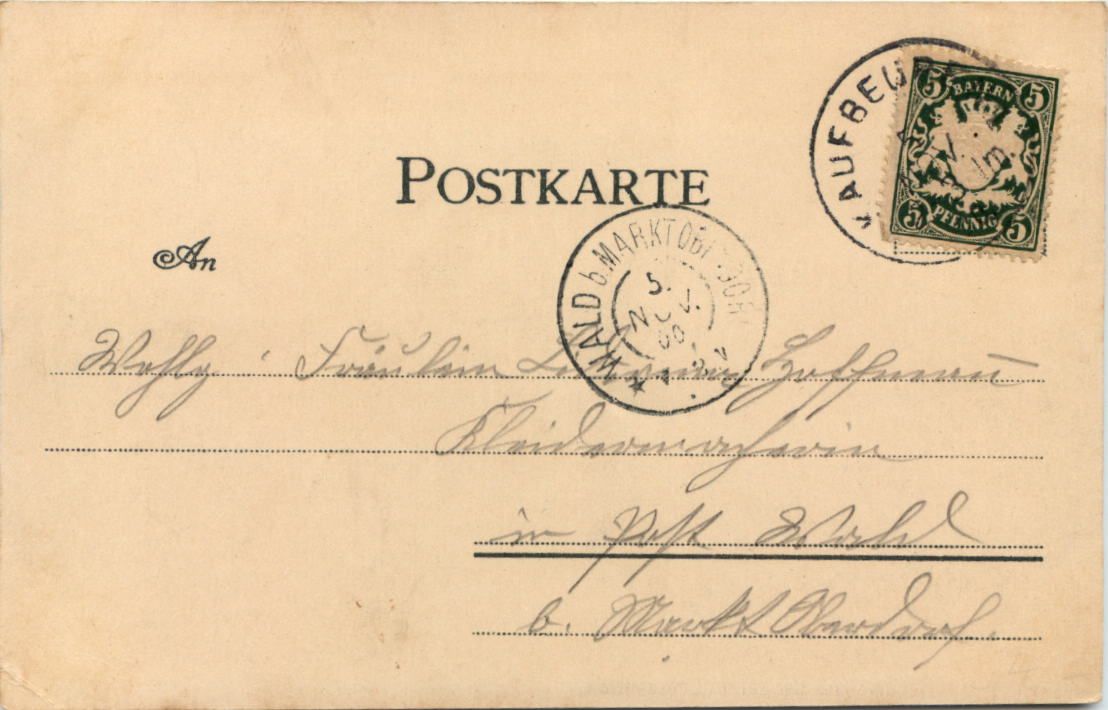 POSTKARTE
KAUFBEUREN
NOV.
5 BAYERN 5
5 PFENNIG 5
WALD b. MARKTOBERDORF
5.
NOV.
00
An
Wohlg. Fräulein Hoffmann
Kleidermacherin
in Post Wald
b. Markt Oberdorf.